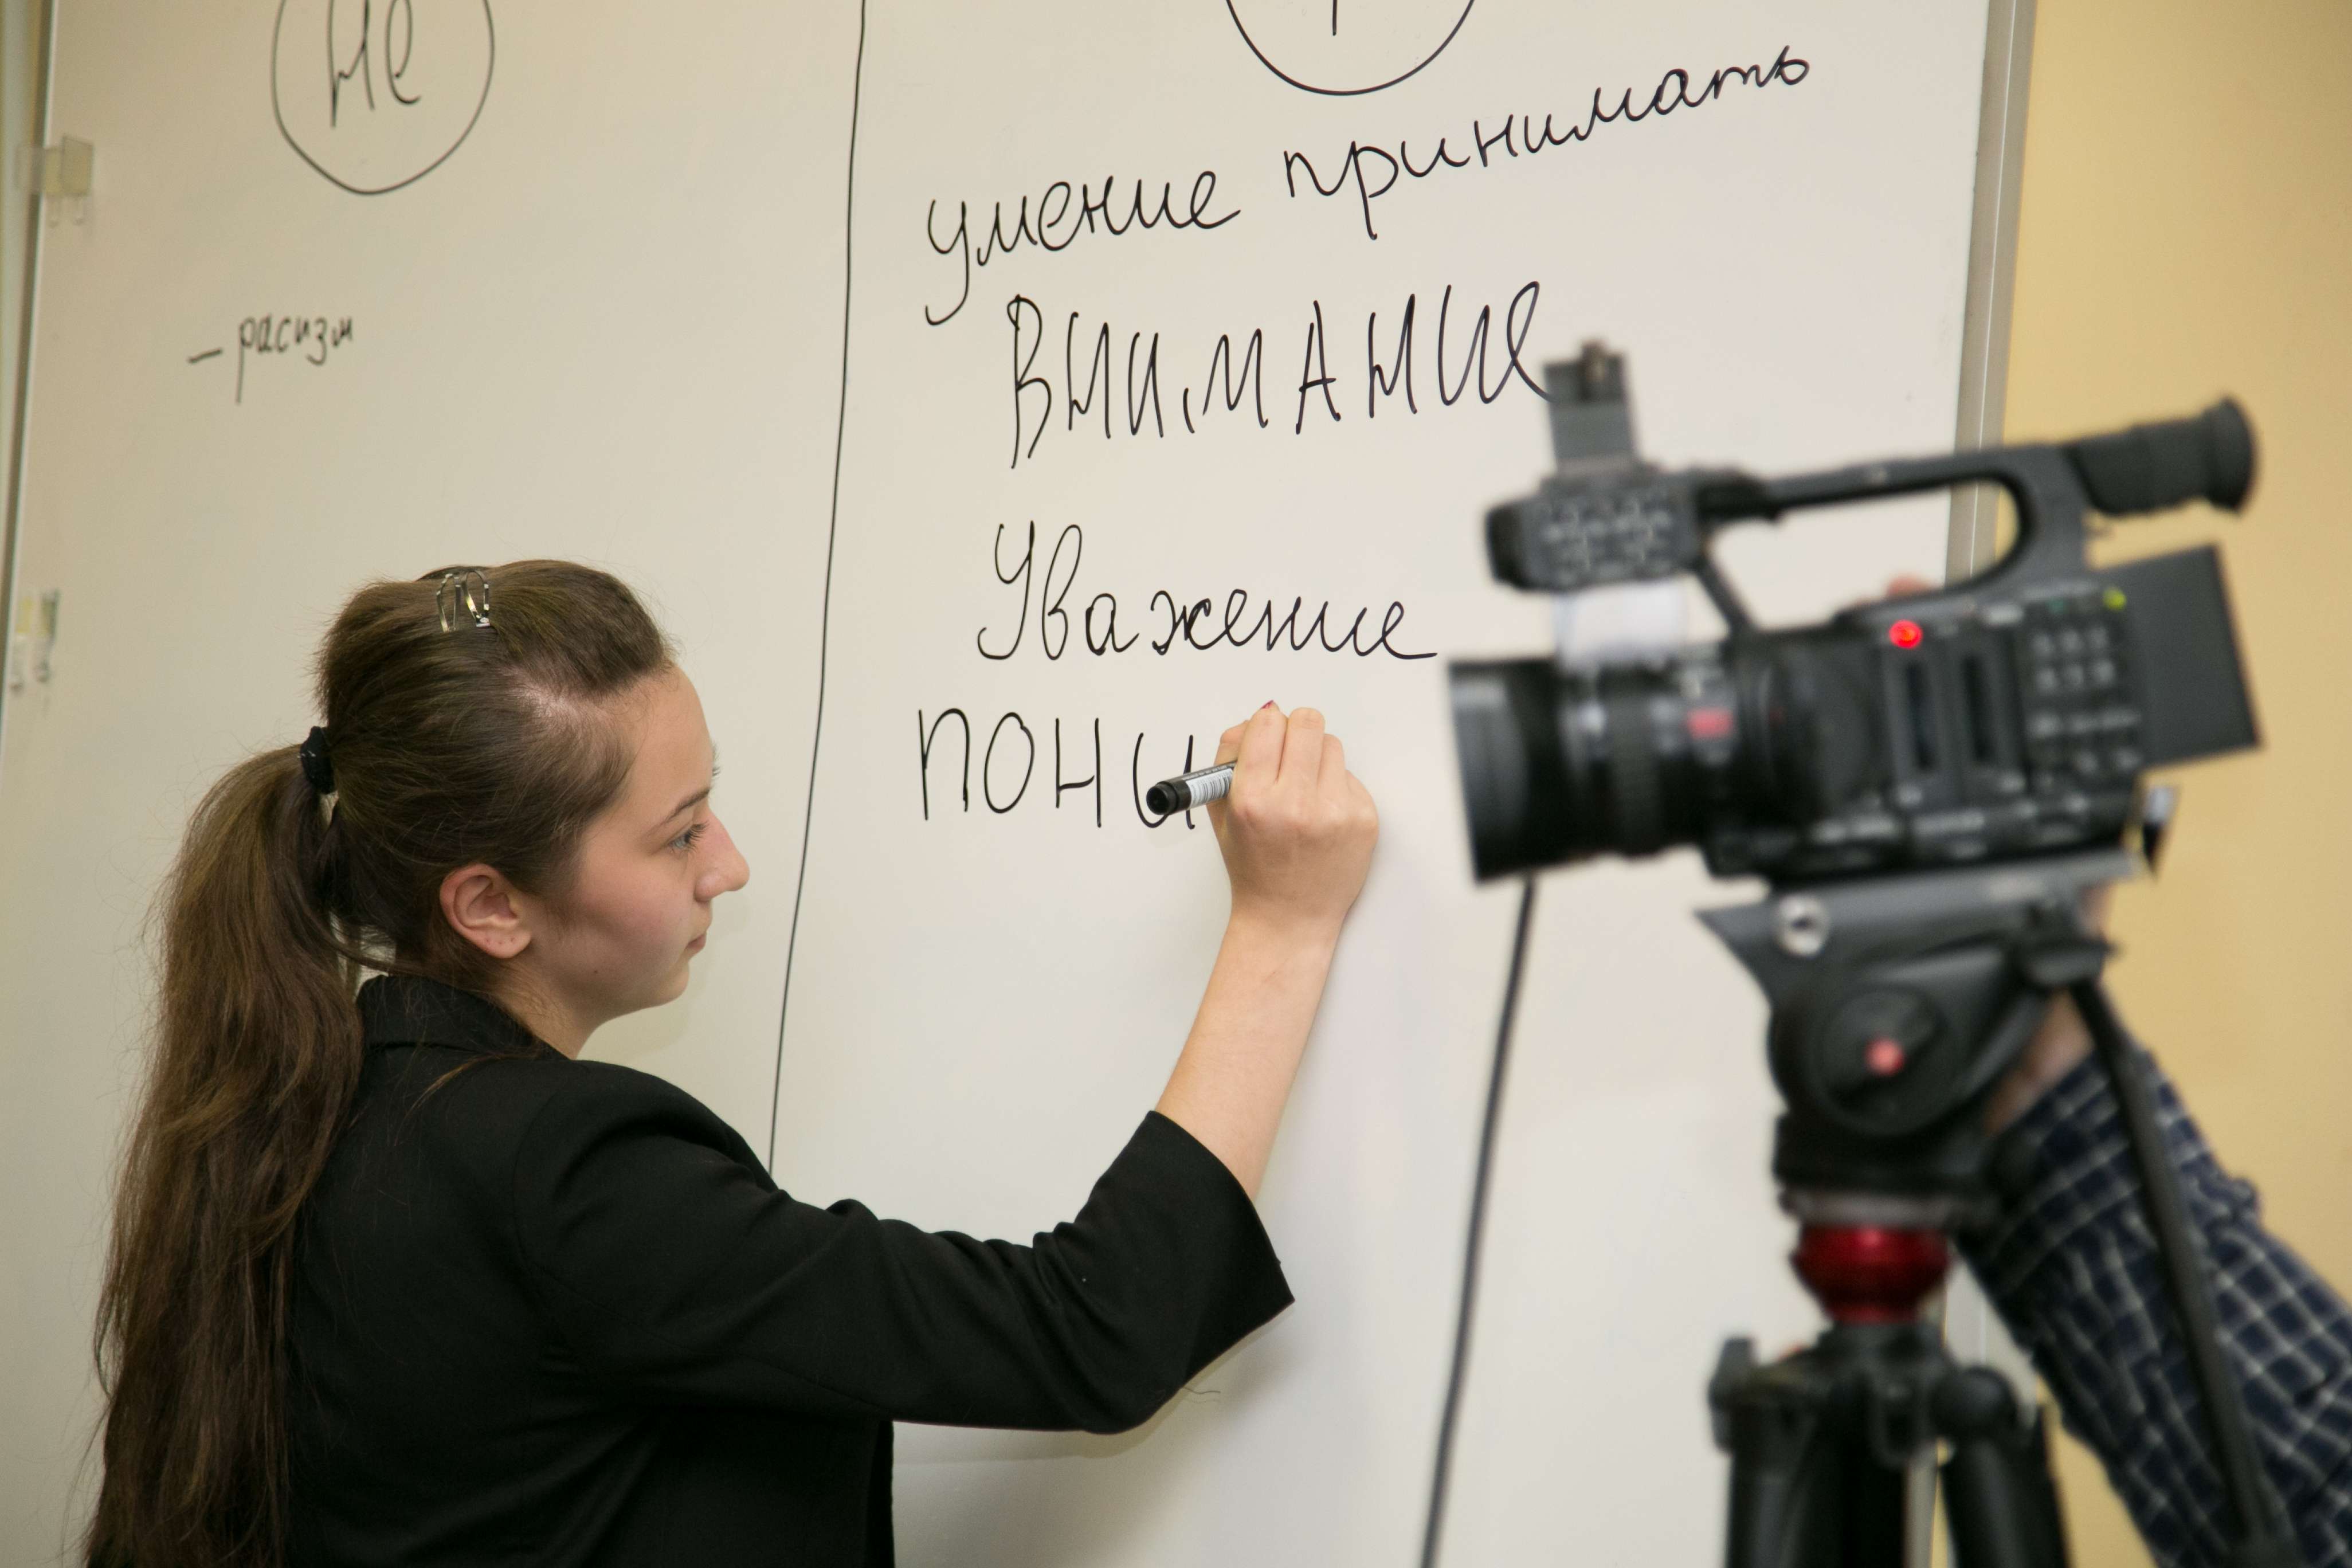 не
- расизм
умение принимать
ВНИМАНИе
Уважение
пони